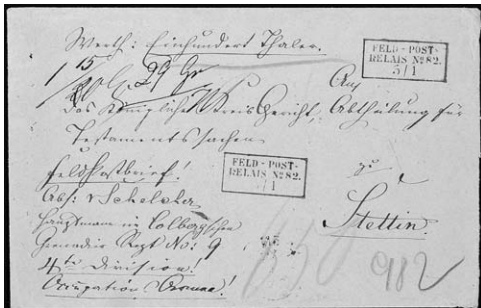 Werth: Einhundert Thaler.
FELD-POST-
RELAIS Nº 82.
5/1
29 Gr
An
das Königliche Kreis Gericht, Abtheilung für
Testamentssachen
zu
Stettin.
FELD-POST-
RELAIS Nº 82.
/1
Feldpostbrief!
Abs:
Hauptmann im Colbergschen
Grenadir Regt No: 9
4te Division!
Occupation Armee!
982